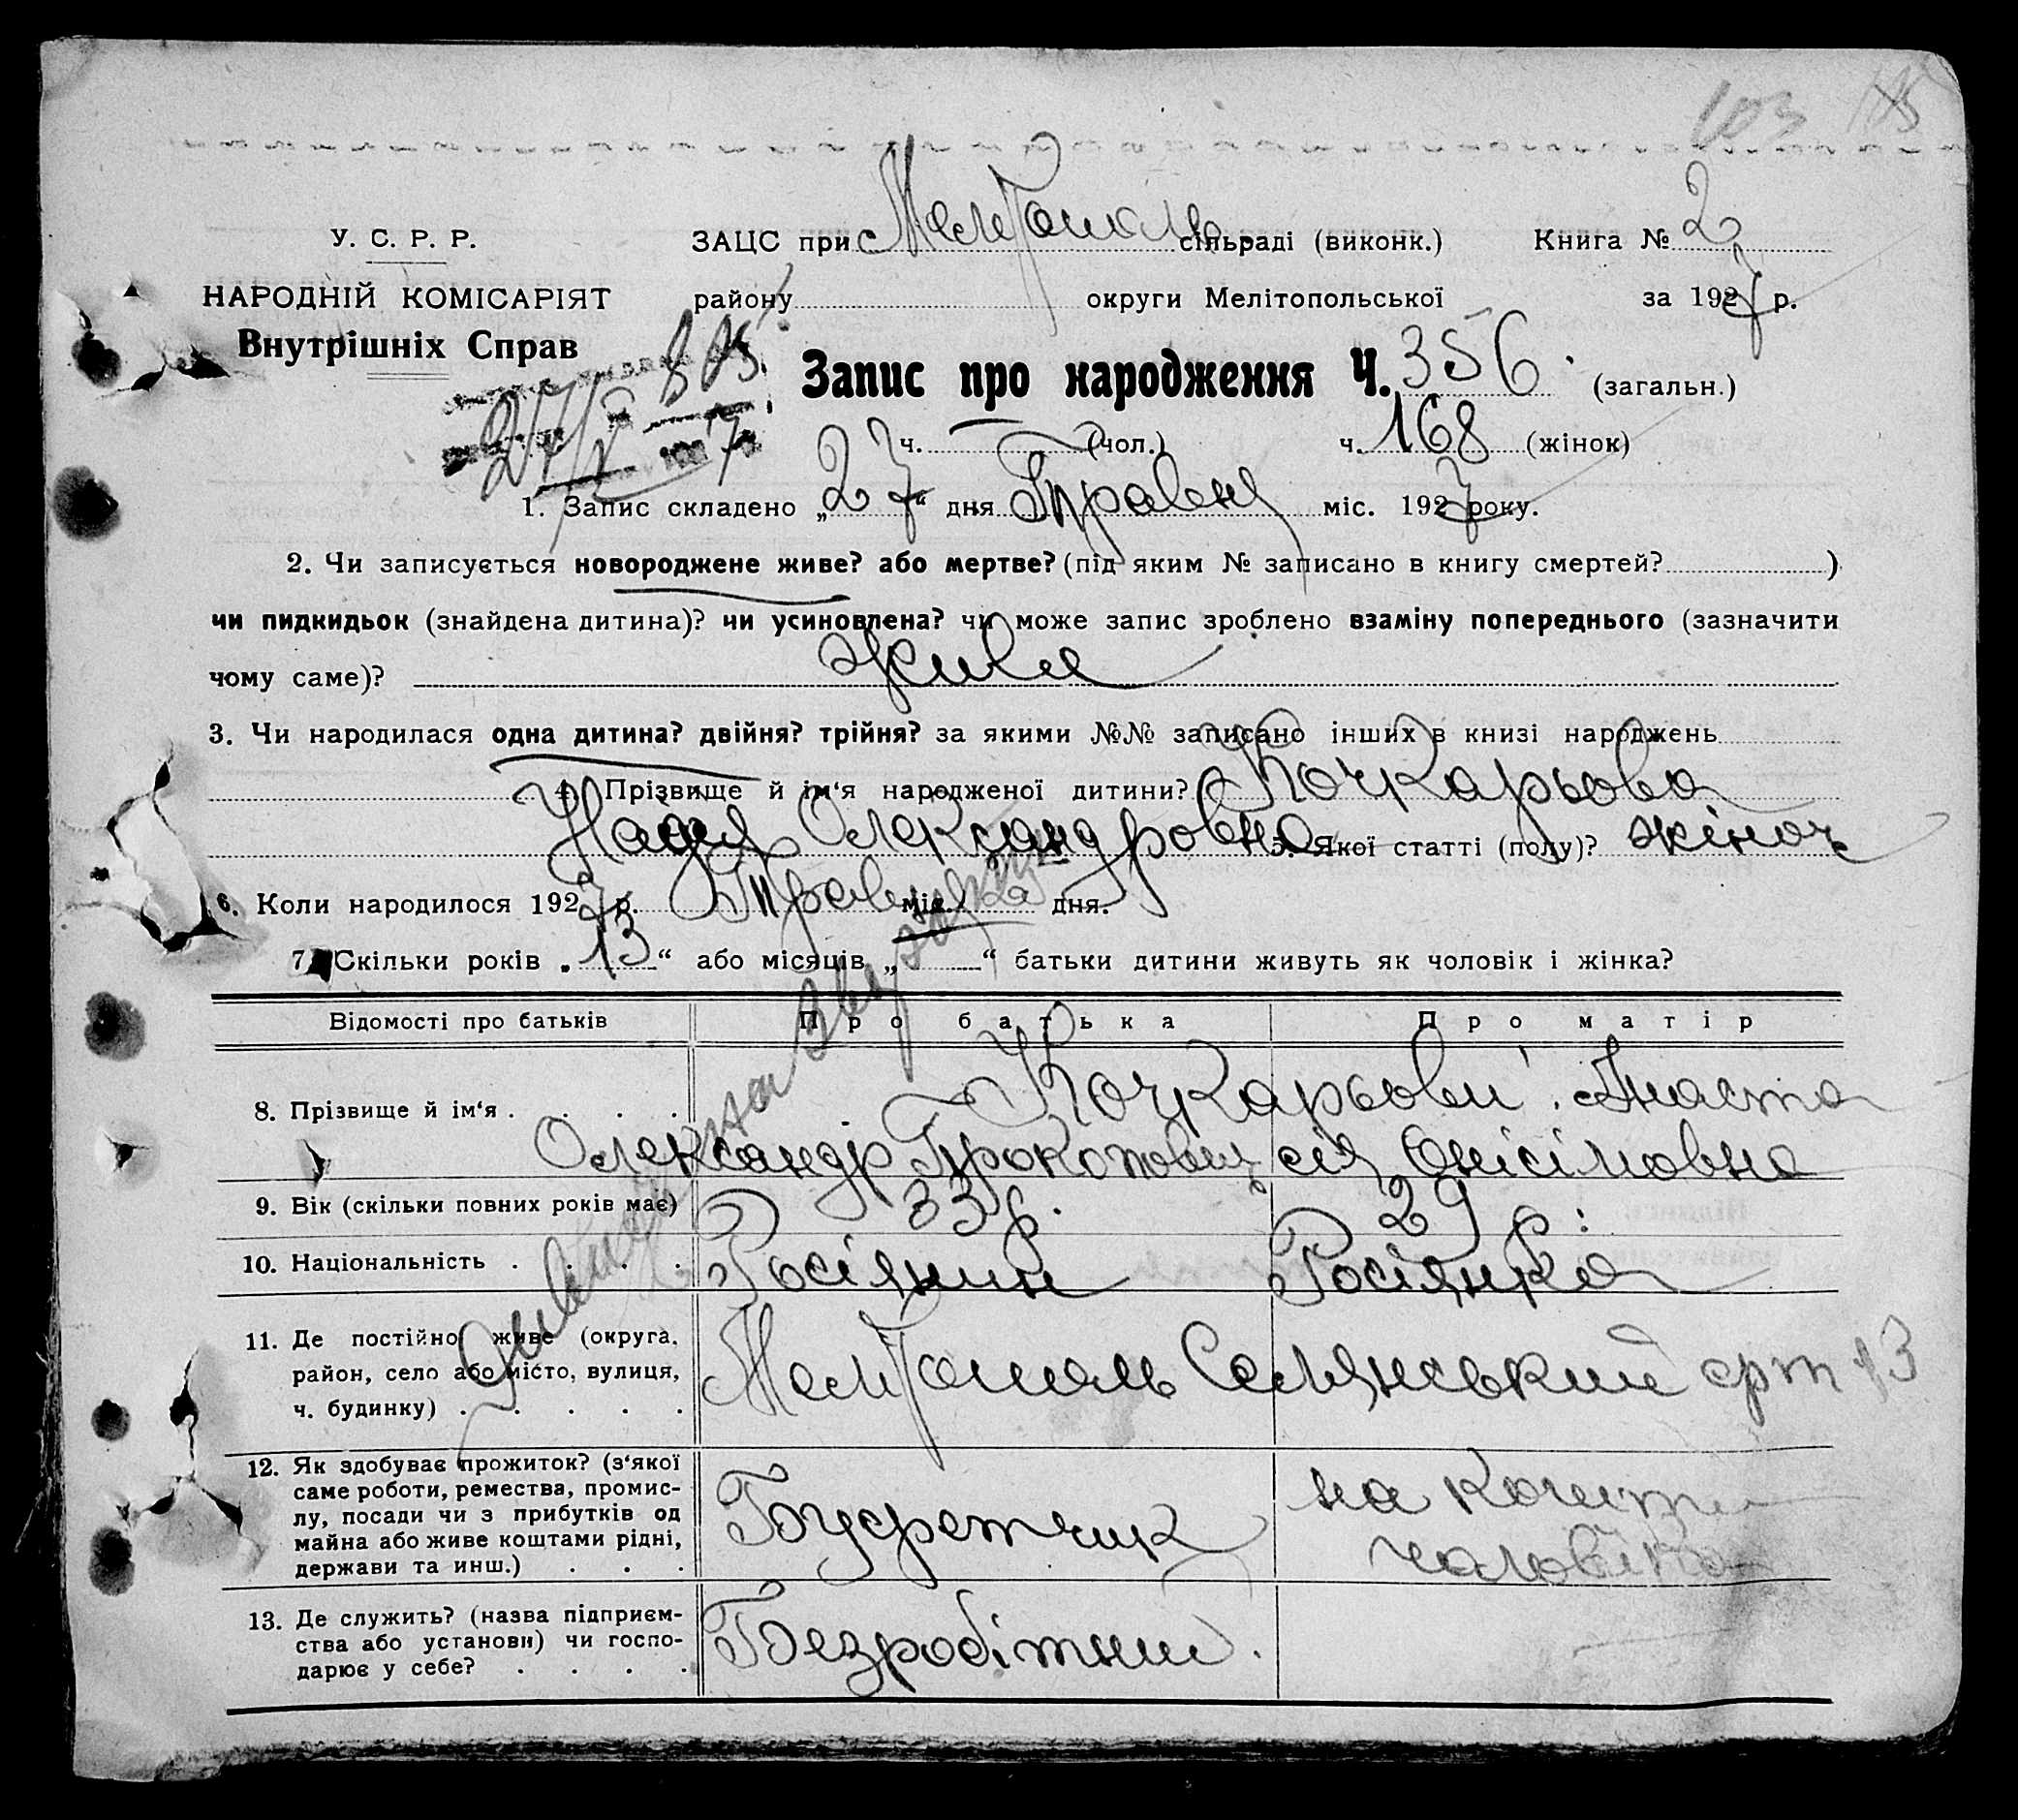 103
У. С. Р. Р.
ЗАЦС при Мелітополь сільраді (виконк.) Книга № 2
НАРОДНІЙ КОМІСАРІЯТ
району округи Мелітопольської за 1927 р.
Внутрішніх Справ
Запис про народження Ч. 356. (загальн.)
ч. (чол.) ч. 168 (жінок)
1. Запис складено „27“ дня Травня міс. 1927 року.
2. Чи записується новороджене живе? або мертве? (під яким № записано в книгу смертей? )
чи пидкидьок (знайдена дитина)? чи усиновлена? чи може запис зроблено взаміну попереднього (зазначити
чому саме)? живе
3. Чи народилася одна дитина? двійня? трійня? за якими №№ записано інших в книзі народжень
4. Прізвище й ім‘я народженої дитини? Кочкарьова
Надія Олександровна 5. Якої статті (полу)? жіноч
6. Коли народилося 1927 р. Травня міс. 2 дня.
7. Скільки років „13“ або місяців „ “ батьки дитини живуть як чоловік і жінка?
Відомості про батьків Про батька Про матір
8. Прізвище й ім‘я . . . . Кочкарьови Анаста
Олександр Прокопович сія Онісімовна
9. Вік (скільки повних років має) 33 р. 29 р.
10. Національність . . . . Росіянин Росіянка
11. Де постійно живе (округа,
район, село або місто, вулиця,
ч. будинку) . . . . . Мелітополь Селянський 13
12. Як здобуває прожиток? (з‘якої
саме роботи, ремества, промис-
лу, посади чи з прибутків од
майна або живе коштами рідні,
держави та инш.) . . . Буфетчик на кошти
чоловіка
13. Де служить? (назва підприєм-
ства або установи) чи госпо-
дарює у себе? . . . . Безробітний.